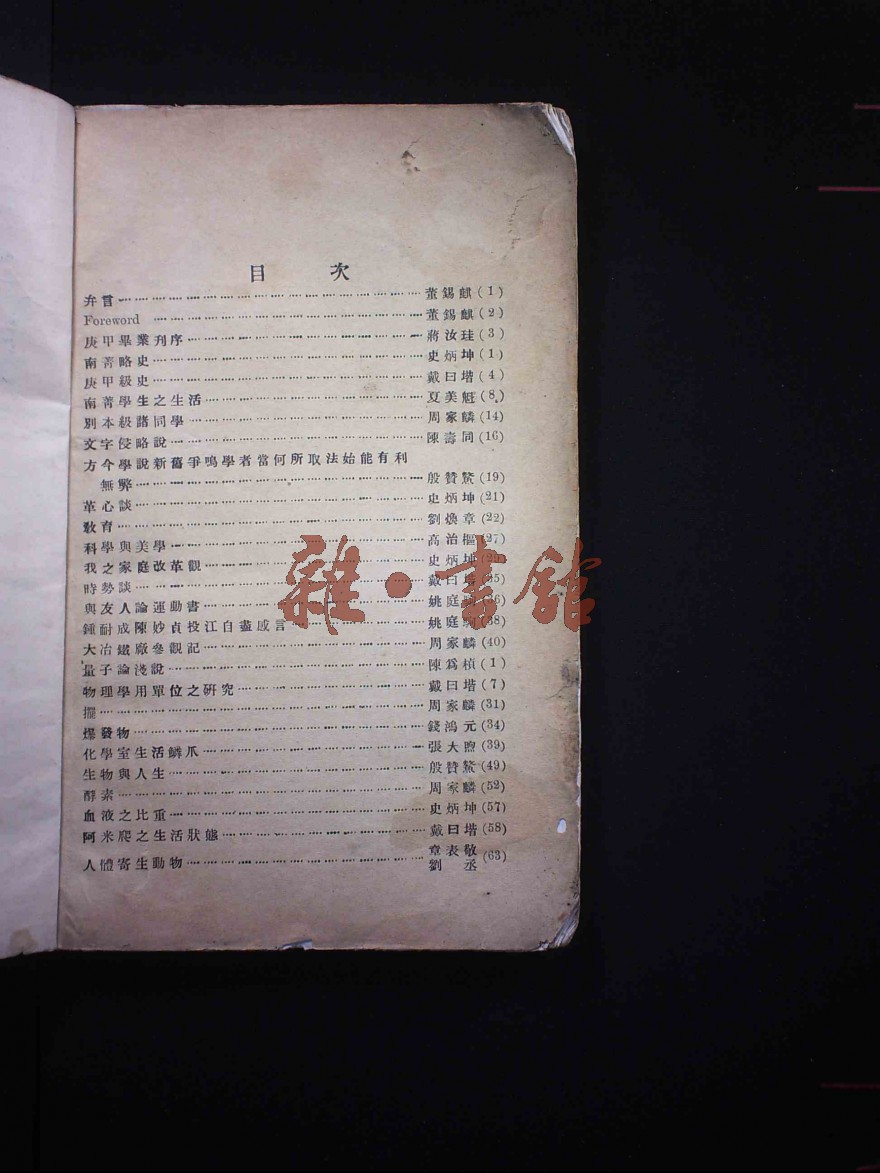 目次
弁言 董錫麒(1)
Foreword 董錫麒(2)
庚甲畢業刋序 蔣汝珪(3)
南菁略史 史炳坤(1)
庚甲級史 戴曰堦(4)
南菁學生之生活 夏美魁(8)
別本級諸同學 周家麟(14)
文字侵略說 陳壽同(16)
方今學說新舊爭鳴學者當何所取法始能有利
無弊 殷贊鰲(19)
革心談 史炳坤(21)
敎育 劉煥章(22)
科學與美學 高治樞(27)
我之家庭改革觀 史炳坤
時勢談 戴曰堦
與友人論運動書 姚庭
鍾耐成陳妙貞投江自盡感言 姚庭
大冶鐵廠參觀記 周家麟(40)
量子論淺說 陳爲楨(1)
物理學用單位之硏究 戴曰堦(7)
擺 周家麟(31)
爆發物 錢鴻元(34)
化學室生活鱗爪 張大煦(39)
生物與人生 殷贊鰲(49)
酵素 周家麟(52)
血液之比重 史炳坤(57)
阿米爬之生活狀態 戴曰堦(58)
人體寄生動物 章表敬 劉丞(63)
雜·書館